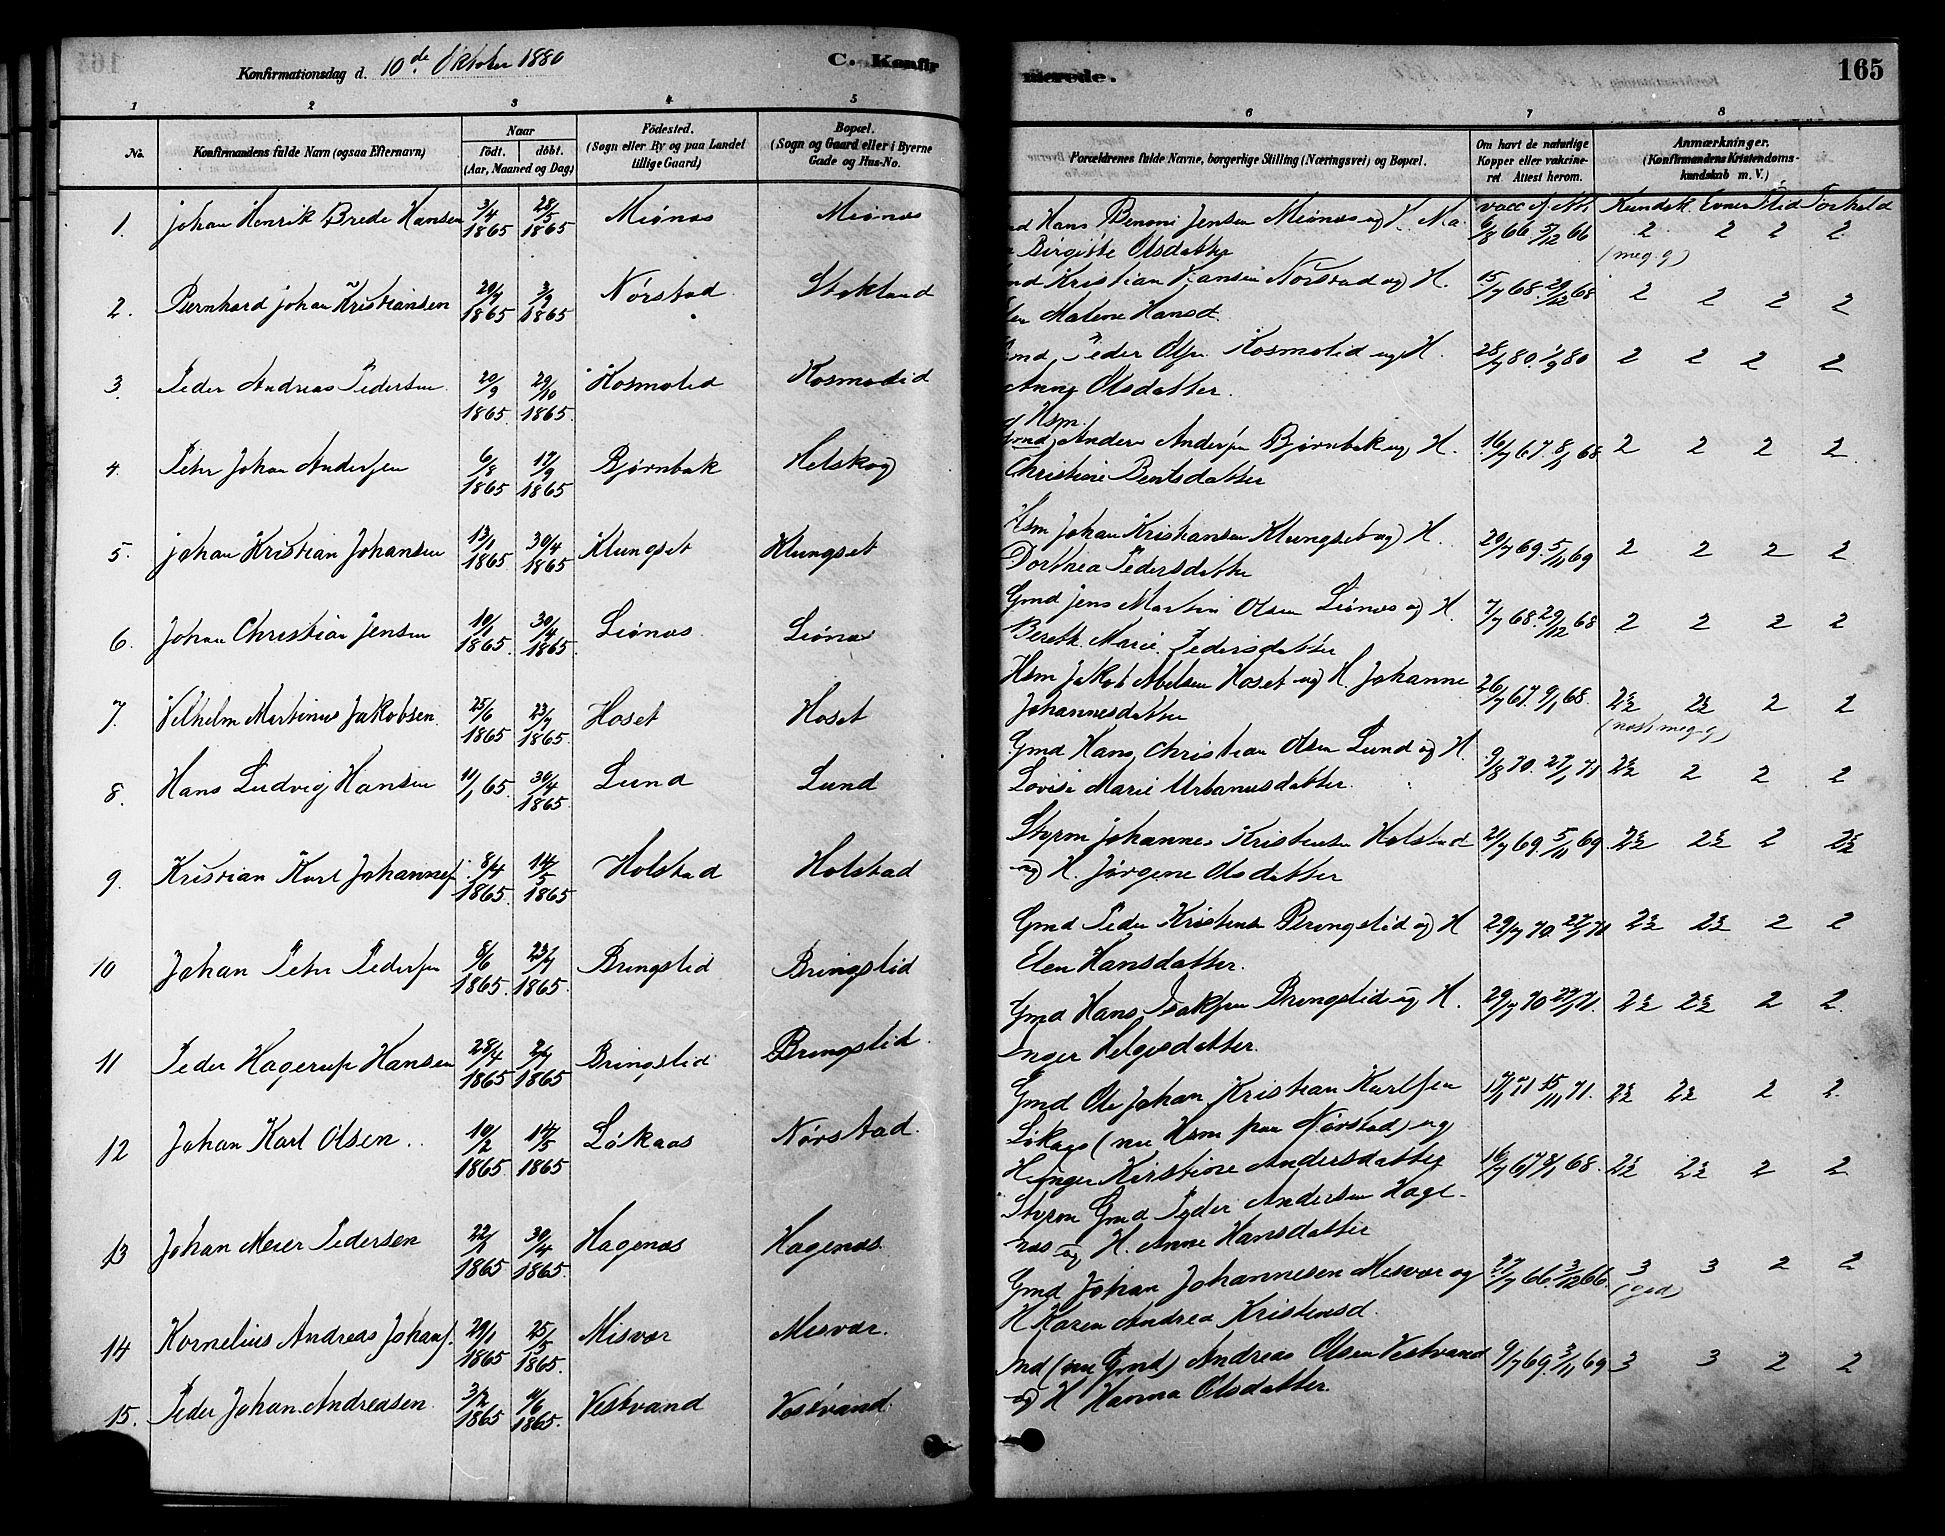 Konfirmationsdag d. 10de Oktober 1880
C. Konfirmerede.
165
1 2 3 4 5 6 7 8
No. Konfirmandens fulde Navn (ogsaa Efternavn) Naar født. døbt. (Aar, Maaned og Dag) Fødested. (Sogn eller By og paa Landet tillige Gaard) Bopæl. (Sogn og Gaard eller i Byerne Gade og Hus-No. Forældrenes fulde Navne, borgerlige Stilling (Næringsvei) og Bopæl. Om havt de naturlige Kopper eller vakcineret Attest herom. Anmærkninger. (Konfirmandens Kristendomskundskab m. V.)
Kundsk. Evner Flid Forhold
1. Johan Henrik Brede Hansen 3/4 1865 28/5 1865 Miønes Miønes Hans Benoni Jensen Miønes og 6/8 66 5/12 66 2 2 2 2
Birgitte Olsdatter (meg. g)
2. Bernhard Johan Kristiansen 20/7 1865 3/9 1865 Nørstad Stokland Kristian Hansen Nørstad og H. 15/7 68 29/12 68 2 2 2 2
Malene Hansd.
3. Peder Andreas Pedersen 20/9 1865 29/10 1865 Kosmolid Kosmolid Peder Olsen Kosmolid og H. 28/7 80. 1/9 80 2 2 2 2
Anne Olsdatter.
Hsm
4. Petr Johan Andersen 6/8 1865 17/9 1865 Bjørnbak Helskog Anders Andersen Bjørnbak og H. 16/7 67. 8/1 68 2 2 2 2
Christine Bentsdatter
5. Johan Kristian Johansen 13/1 1865 30/4 1865 Klungset Klungset Hsm Johan Kristiansen Klungset og H. 20/7 69. 5/11 69 2 2 2 2
Dorthea Pedersdatter
6. Johan Christian Jensen 10/1 1865 30/4 1865 Liønes Liønes Gmd Jens Martin Olsen Liønes og H. 7/7 68. 29/12 68 2 2 2 2
Bereth Marie Pedersdatter
7. Vilhelm Martinus Jakobsen 25/6 1865 23/7 1865 Hoset Hoset Hsm Jakob Abelsen Hoset og H Johanne 26/7 67. 9/1 68. 2½ 2½ 2 2
Johannesdatter (næst meg. g)
8. Hans Ludvig Hansen 11/1 65 30/4 1865 Lund Lund Gmd Hans Christian Olsen Lund og H. 9/8 70. 27/1 71 2½ 2 2 2
Lovise Marie Urbanusdatter.
9. Kristian Karl Johannes 8/4 1865 14/5 1865 Holstad Holstad Styrm Johannes Kristensen Holstad 21/7 69. 5/11 69 2½ 2½ 2 2½
og H. Jørgene Olsdatter
10 Johan Petr Pedersen 8/6 1865 23/7 1865 Bringslid Bringslid Gmd Peder Kristensen Bringslid og H 29/7 70 27/1 71 2½ 2½ 2 2
Elen Hansdatter.
11 Peder Hagerup Hansen 28/4 1865 2/7 1865 Bringslid Bringslid. Gmd Hans Isaksen Bringslid og H. 29/7 70 27/1 71. 2½ 2½ 2 2
Inger Helgesdatter.
12 Johan Karl Olsen 10/2 1865 14/5 1865 Løkaas Nørstad Gmd Ole Johan Kristian Karlsen 15/11 71. 2½ 2½ 2 2
Løkaas (nu Hsm paa Nørstad) og
H Inger Kirstine Andersdatter
13 Johan Meier Pedersen 22/2 1865 30/4 1865 Hagenæs Hagenæs Styrm Gmd Peder Andersen Hage- 16/7 67 8/1 68. 2½ 2½ 2 2
næs og H. Anne Hansdatter
14 Kornelius Andreas Johans. 29/1 1865 25/5 1865. Misvær Misvær. Gmd Johan Johannesen Misvær og 27/7 66. 3/12 66 3 3 2 2
H Karen Andrea Kristensd. (god)
15. Peder Johan Andreasen 3/2 1865 4/6 1865. Vestvand Vestvand. (nu Gmd) Andreas Olsen Vestvand 9/7 69. 3/11 69 3 3 2 2
og H Hanna Olsdatter.